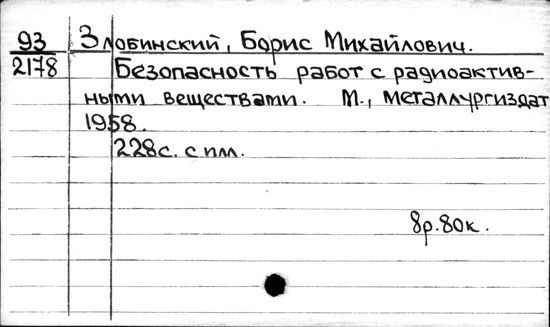 93 Злобинский, Борис Михайлович.
2178 Безопасность работ с радиоактив-
ными веществами. М., Металлургиздат
1958.
228с. с илл.
8р.80к.